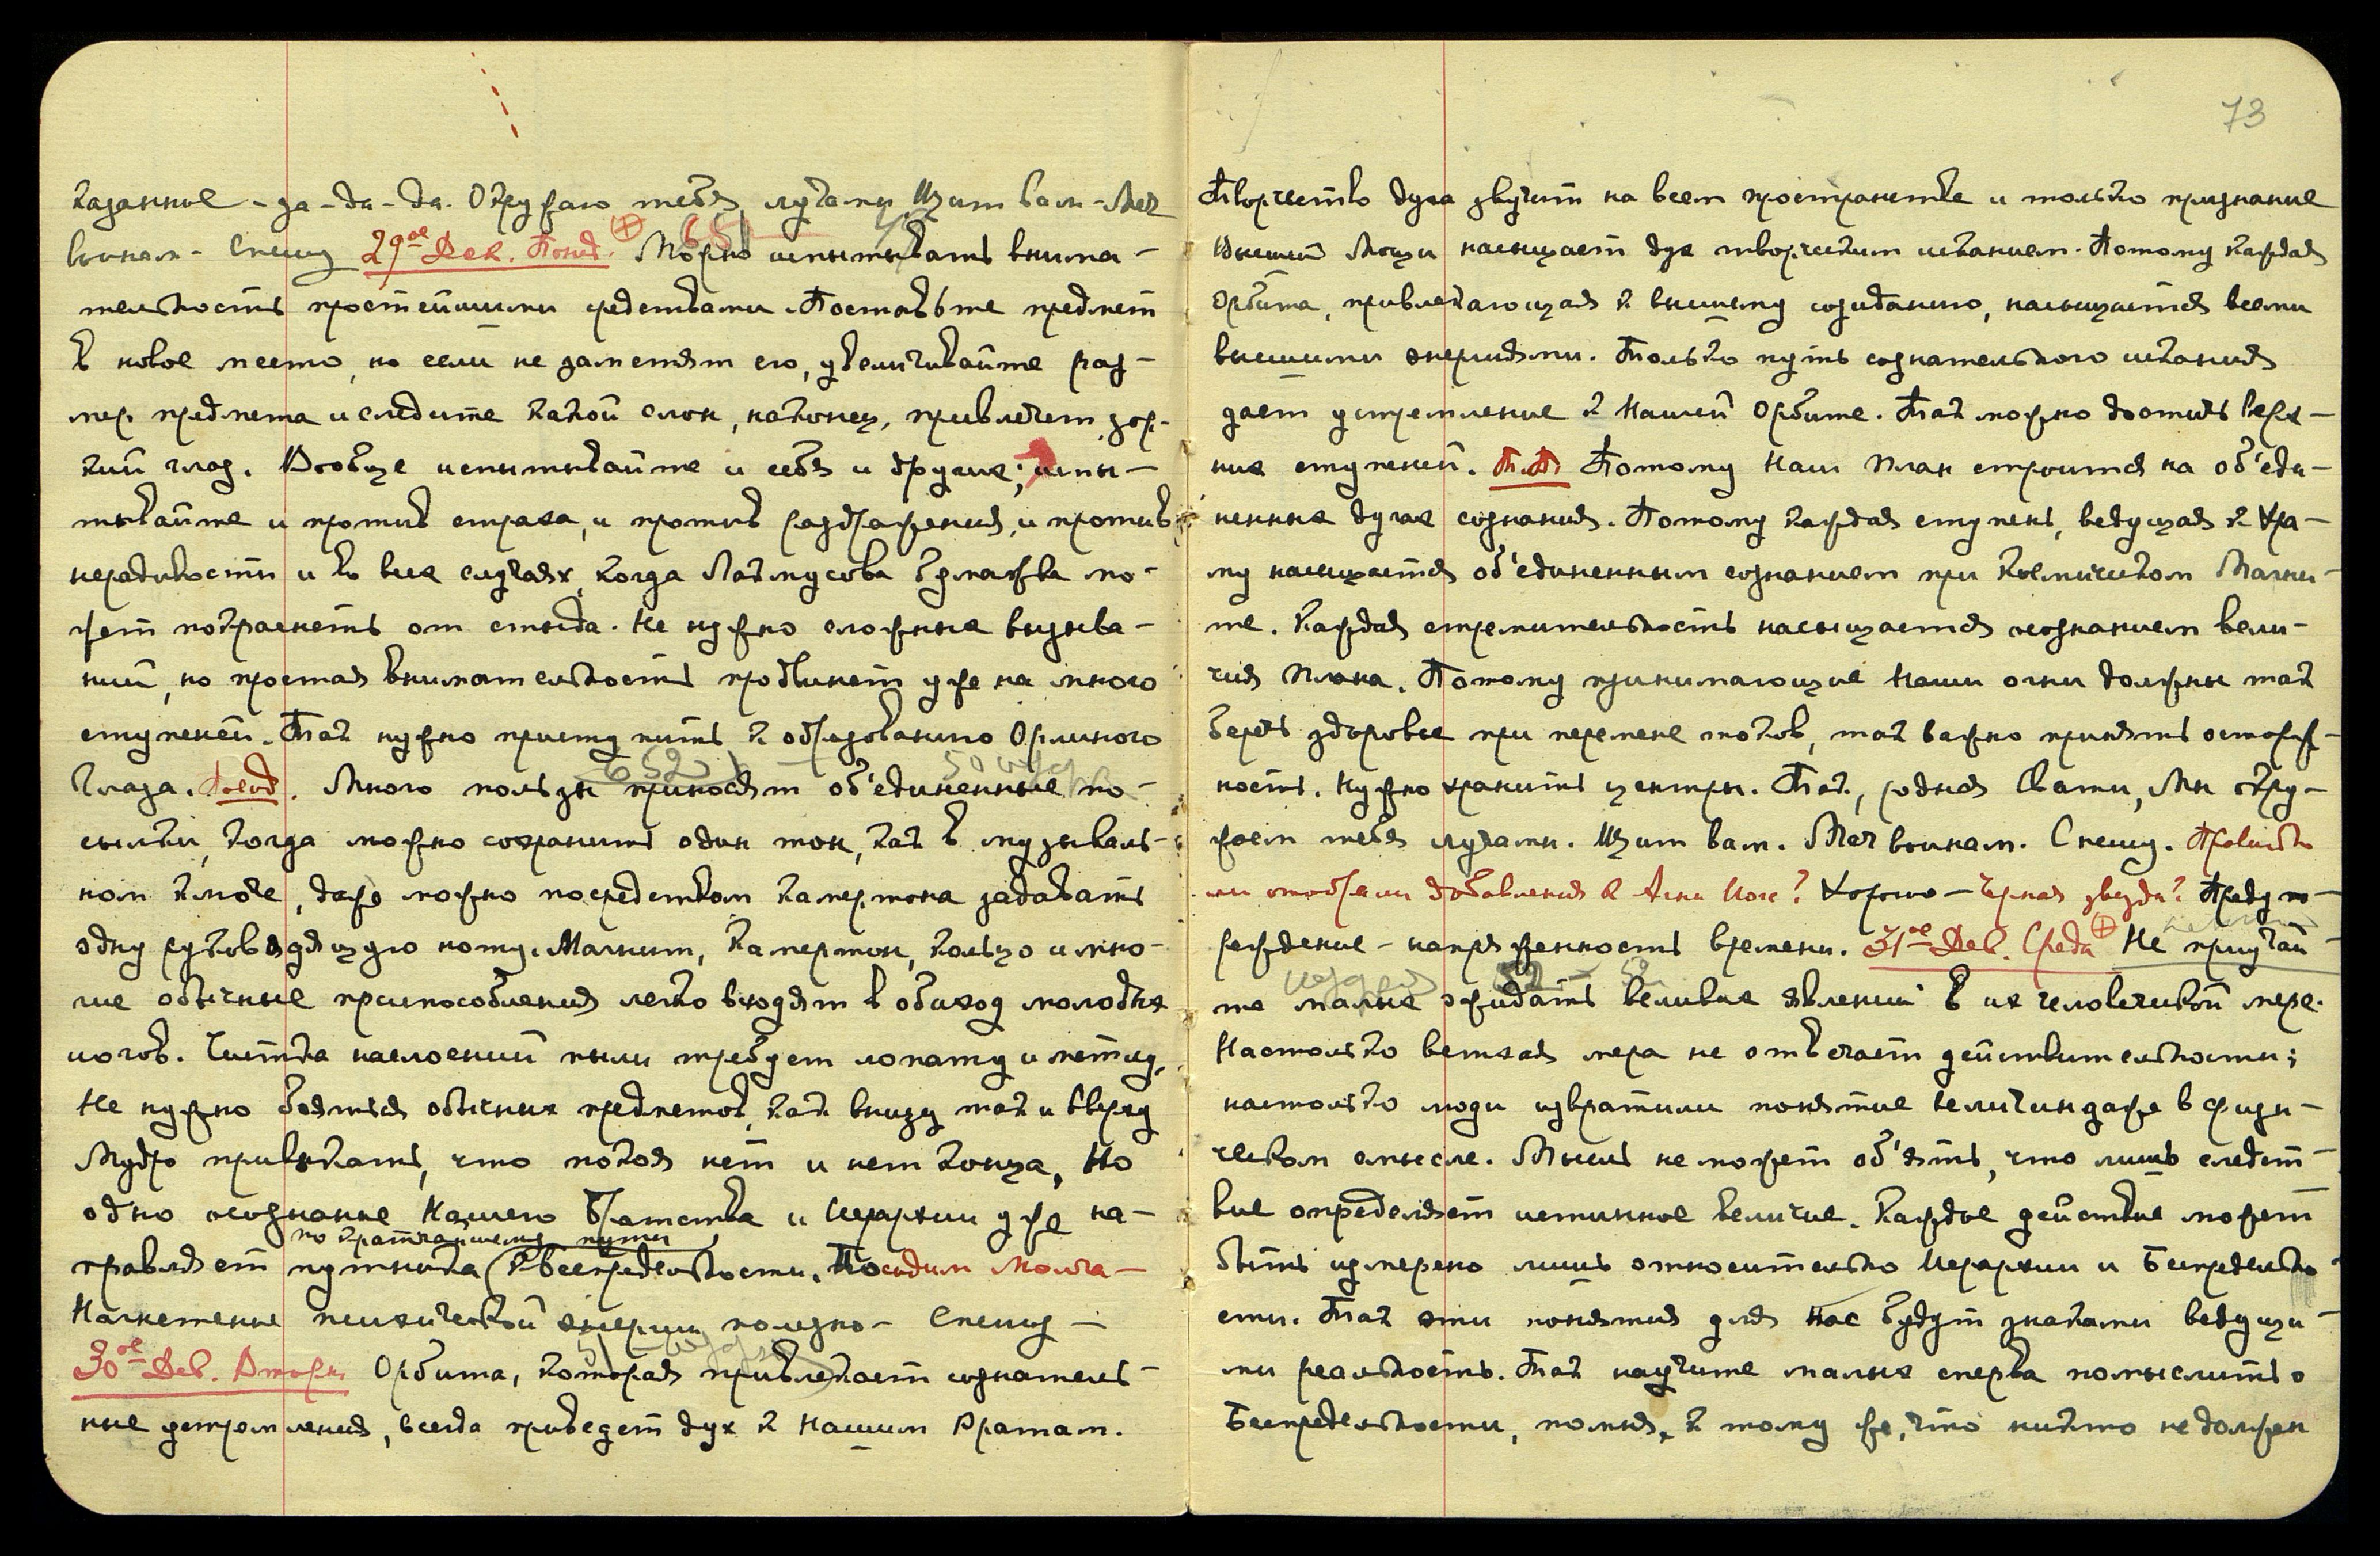 казанное – да – да – да. Окружаю тебя лучами. Щит вам – Меч
воинам – Спешу 29ое Дек. Понед. Можно испытывать внима–
тельность простейшими средствами. Поставьте предмет
в новое место, но если не заметят его, увеличивайте раз–
мер предмета и следите какой слон, наконец, привлечет зор–
кий глаз. Вообще испытывайте и себя и других; испы–
тывайте и против страха, и против раздражения, и против
нерадивости и во всех случаях, когда Лакмусова бумажка мо–
жет покраснеть от стыда. Не нужно сложных вызыва–
ний, но простая внимательность продвинет уже на много
ступеней. Так нужно приступить к образованию Орлиного
Глаза. 652 Много пользы приносят об'единенные по–
сылки, когда можно сохранить один тон, как в музыкаль–
ном ключе, даже можно посредством камертона задавать
одну руководящую ноту. Магнит, камертон, кольцо и мно–
гие обычные приспособления легко входят в обиход молодых
иогов. Чистка наслоений пыли требует лопату и метлу.
Не нужно бояться обычных предметов, как внизу так и вверху
Мудро привыкать, что покоя нет и нет конца, Но
одно осознание Нашего Братства и Иерархии уже на–
по кратчайшему пути
правляет путника к Беспредельности. Посидим Молча –
Нагнетение психической энергии полезно – Спешу –
30ое Дек. Вторн. Орбита, которая привлекает сознатель–
ные устремления, всегда приведет дух к Нашим Вратам.
73
Творчество духа звучит на всем пространстве и только признание
Высшей Мощи насыщает дух творческим исканием. Потому каждая
Орбита, привлекающая к высшему созиданию, насыщается всеми
высшими энергиями. Только путь сознательного искания
дает устремление к Нашей Орбите. Так можно достичь верх–
них ступеней. Потому Наш План строится на об'еди–
ненных духах сознания. Потому каждая ступень, ведущая к Хра–
му насыщается об'единенным сознанием при Космическом Магни–
те. Каждая стремительность насыщается осознанием вели–
чия Плана. Потому принимающие Наши огни должны так
беречь здоровье при перемене токов, так важно принять осторож–
ность. Нужно хранить центры. Так, родная Свати, Мы окру–
жаем тебя лучами. Щит вам. Меч воинам. Спешу. Правильно
ли отобрали добавления к Агни Иоге? Хорошо – Черная звезда? Предупре–
ждение – напряженность времени. 31ое Дек. Среда Не приучай–
те малых ожидать великих явлений в их человеческой мере.
Настолько ветхая мера не отвечает действительности;
настолько люди извратили понятие величин даже в физи–
ческом смысле. Мысль не может об'ять, что лишь следст–
вие определяет истинное величие. Каждое действие может
быть измерено лишь относительно Иерархии и Беспредельно–
сти. Так эти понятия для Нас будут знаками ведущи–
ми реальность. Так научите малых сперва помыслить о
Беспредельности, помня, к тому же, что никто не должен